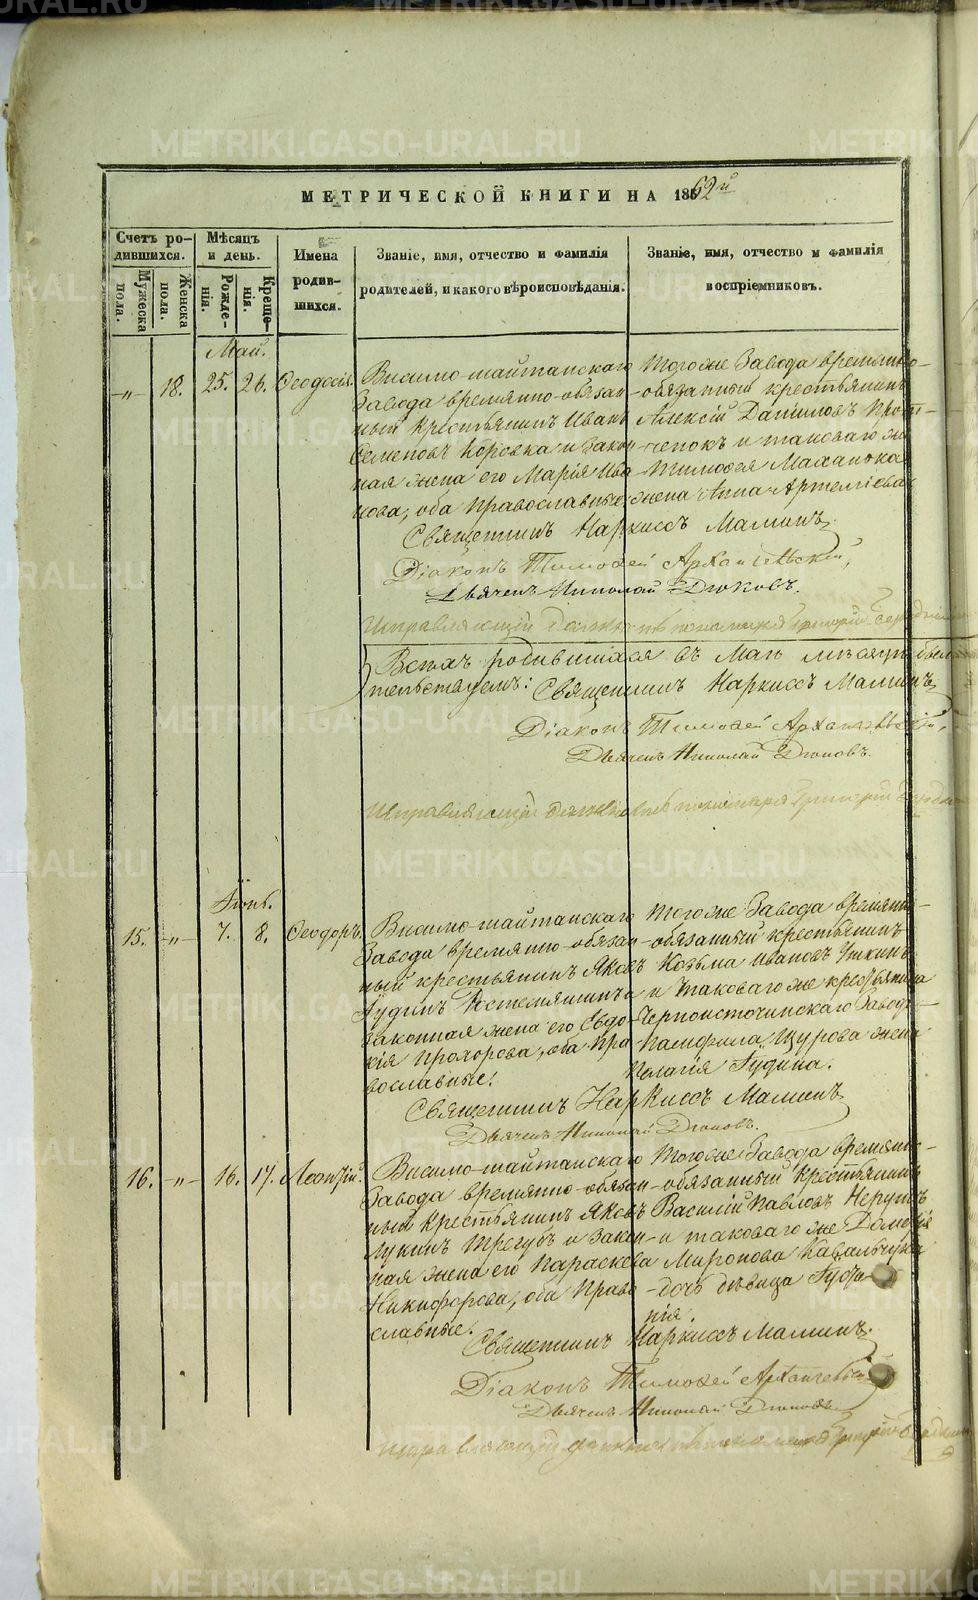 МЕТРИЧЕСКОЙ КНИГИ НА 1862й
Счетъ ро-
дившихся.
Мужеска
пола.
Женска
пола.
Мѣсяцъ
и день.
Рожде-
нія.
Креще-
нія.
Имена
родив-
шихся.
Званіе, имя, отчество и фамилія
родителей, и какого вѣроисповѣданія.
Званіе, имя, отчество и фамилія
воспріемниковъ.
Май.
-„- 18. 25. 26. Ѳеодосія
Висимо-шайтанскаго
завода временно-обязан-
ный крестьянинъ Иванъ
Семеновъ Коровка и закон-
ная жена его Марія Ива-
нова, оба православные.
Тогоже завода временно-
обязанный крестьянинъ
Алексій Даниловъ
и таковаго же
Тимофея Маханька
жена Анна Артеміева
Священникъ Наркиссъ Маминъ
Діаконъ Тимофей Архангельскій,
Дьячекъ Николай Дюковъ.
Исправляющій должность пономаря Григорій
Всѣхъ родившихся въ Маѣ мѣсяцѣ
Священникъ Наркиссъ Маминъ
Діаконъ Тимофей Архангельскій,
Дьячекъ Николай Дюковъ.
Исправляющій должность пономаря Григорій
Іюнь.
15. -„- 7. 8. Ѳеодоръ.
Висимо-шайтанскаго
завода временно-обязан-
ный крестьянинъ Яковъ
Гудинъ и
законная жена его Евдо-
кія Прохорова, оба пра-
вославные.
Тогоже завода временно-
обязанный крестьянинъ
Козьма Ивановъ Уткинъ
и таковаго же крестьянина
Черноисточинскаго завода
Памфила Щурова жена
Пелагія Гудина.
Священникъ Наркиссъ Маминъ
Дьячекъ Николай Дюковъ.
16. -„- 16. 17. Леонтій
Висимо-шайтанскаго
завода временно-обязан-
ный крестьянинъ Яковъ
Лукинъ Трегубъ и закон-
ная жена его Параскева
Никифорова, оба право-
славные.
Тогоже завода временно-
обязанный крестьянинъ
Василій Павловъ
и таковаго же
Миронова Кавальчука
дочь дѣвица
Священникъ Наркиссъ Маминъ.
Діаконъ Тимофей Архангельскій
Дьячекъ Николай Дюковъ
METRIKI.GASO-URAL.RU